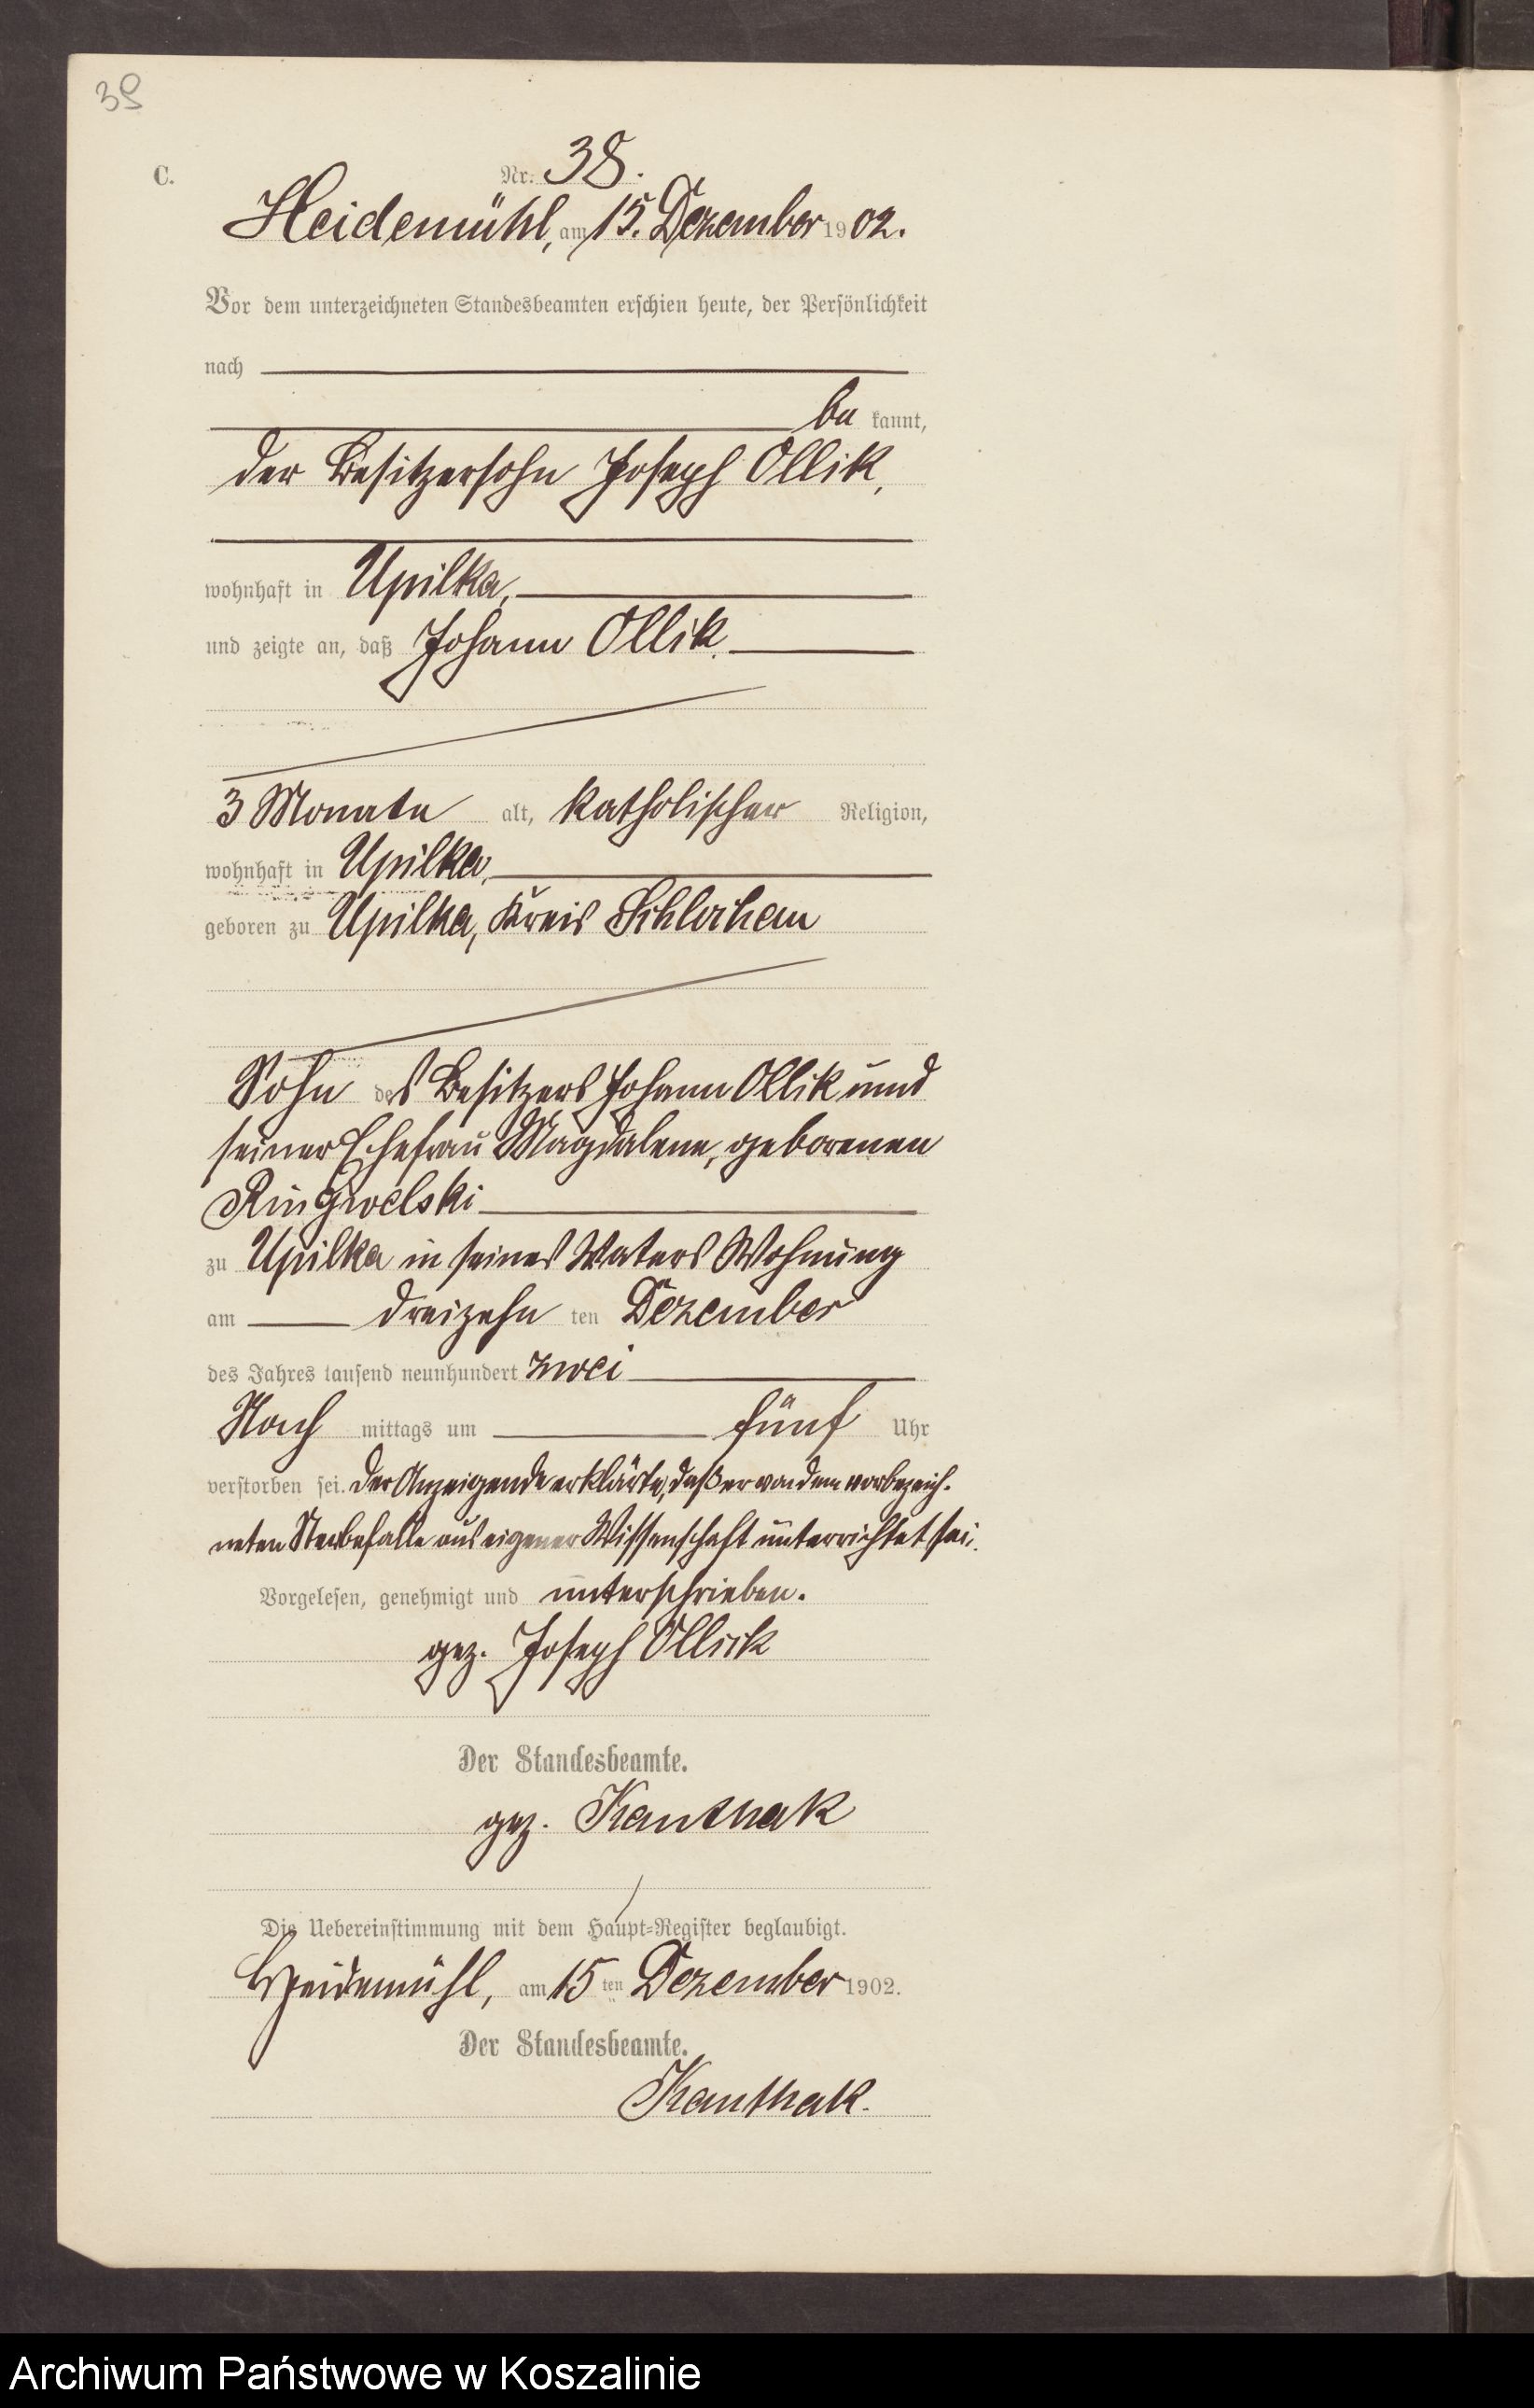 39
C.
Nr. 38.
Heidemühl, am 15. Dezember 1902.
Vor dem unterzeichneten Standesbeamten erschien heute, der Persönlichkeit
nach
be kannt,
der Besitzersohn Joseph Ollik,
wohnhaft in Upilka,
und zeigte an, daß Johann Ollik
3 Monate alt, katholischer Religion,
wohnhaft in Upilka,
geboren zu Upilka, Kreis Schlochau
Sohn des Besitzers Johann Ollik und
seiner Ehefrau Magdalene, geborenen
Ringwelski
zu Upilka in seines Vaters Wohnung
am dreizehn ten Dezember
des Jahres tausend neunhundert zwei
Nach mittags um fünf Uhr
verstorben sei. Der Anzeigende erklärte, daß er von dem vorbezeich-
neten Sterbefalle aus eigener Wissenschaft unterrichtet sei.
Vorgelesen, genehmigt und unterschrieben.
gez. Joseph Ollick
Der Standesbeamte.
gez. Kanthak
Die Uebereinstimmung mit dem Haupt-Register beglaubigt.
Heidemühl, am 15 ten Dezember 1902.
Der Standesbeamte.
Kanthak.
Archiwum Państwowe w Koszalinie